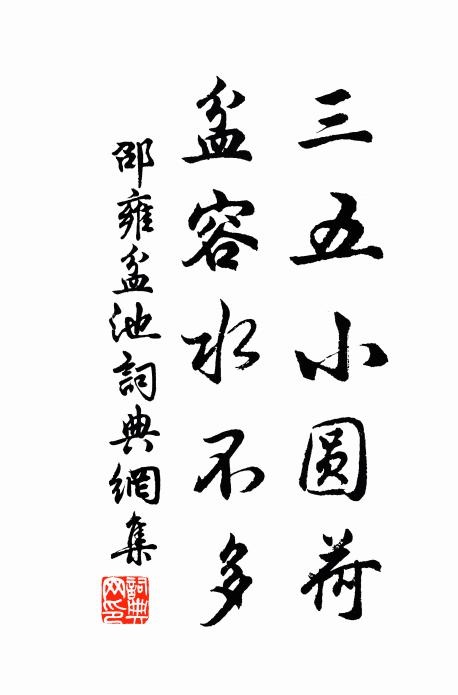 三五小圆荷
盆容水不多
邵雍盆池詞典網集
詞典網印